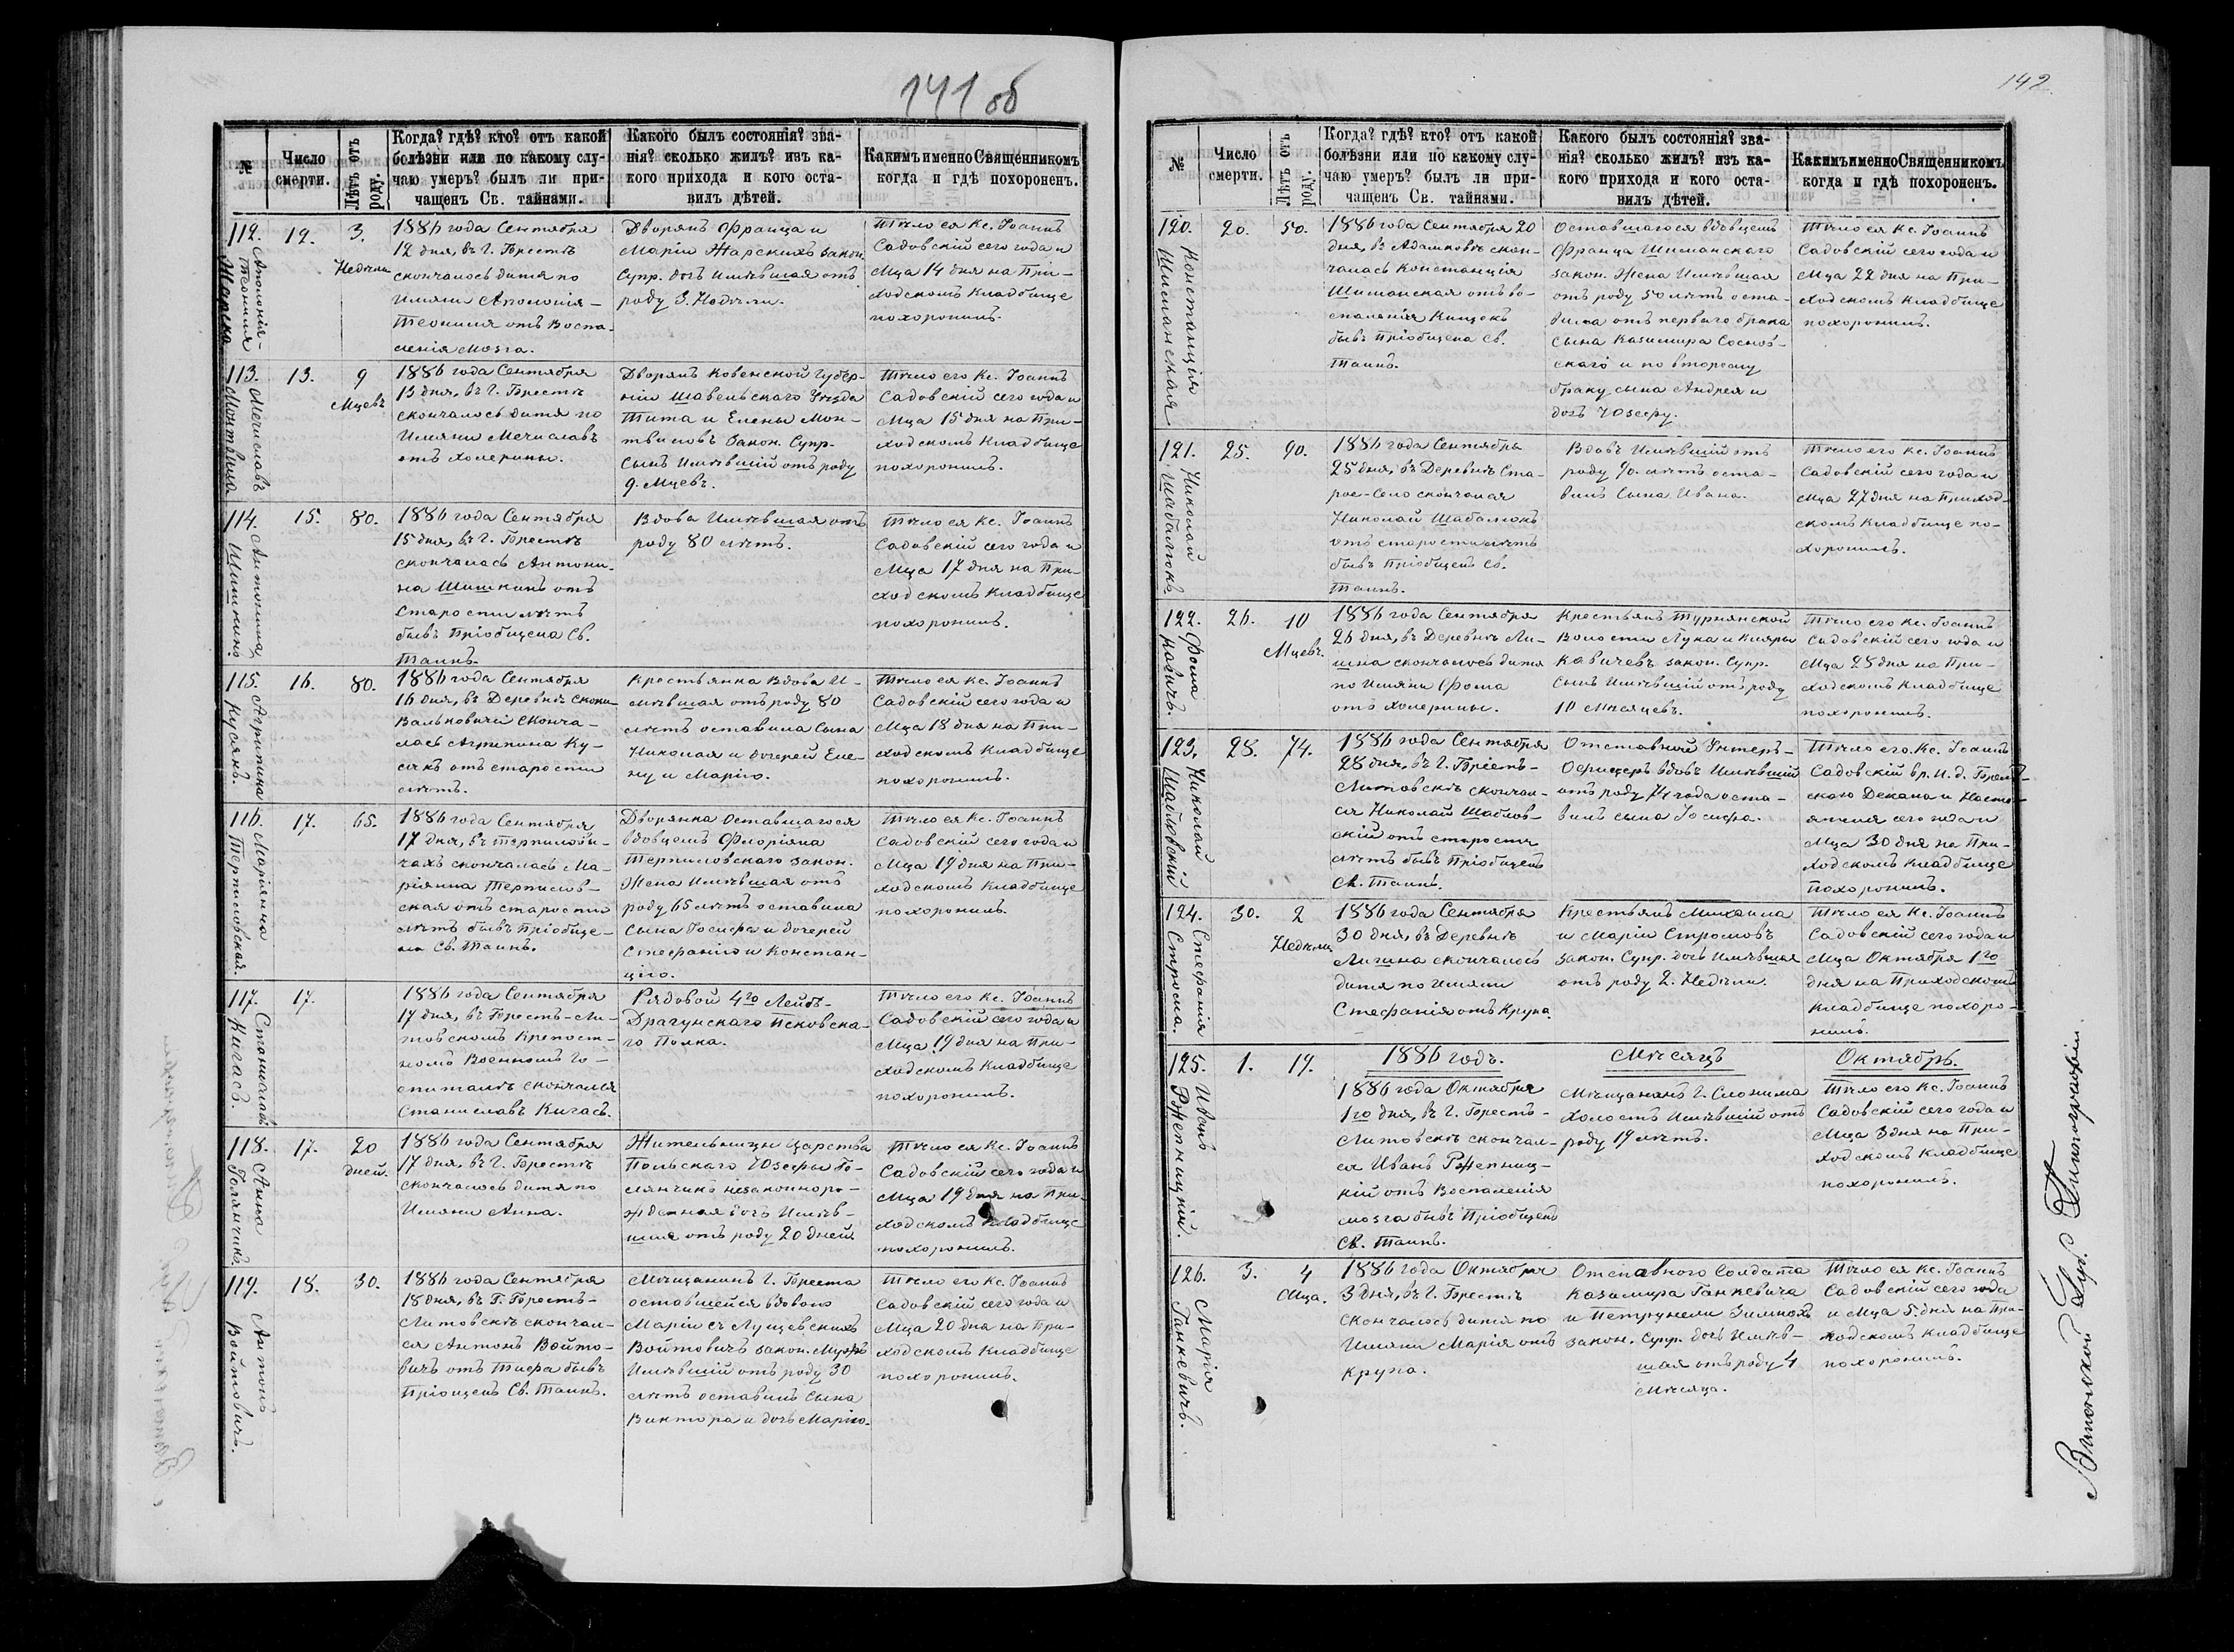 141 об
№
Число смерти.
Лѣтъ отъ роду.
Когда? гдѣ? кто? отъ какой
болѣзни или по какому слу-
чаю умеръ? былъ ли при-
чащенъ Св. тайнами.
Какого былъ состоянія? зва-
нія? сколько жилъ? изъ ка-
кого прихода и кого оста-
вилъ дѣтей.
Какимъ именно Священникомъ
когда и гдѣ похороненъ.
112.
Аполонія-
Теофилия
Жарска
12.
3.
Недѣли
1886 года Сентября
12 дня, въ г. Брестѣ
скончалось дитя по
Имяни Аполонія-
отъ Воспа-
ленія Мозга.
Дворянъ Франца и
Маріи Жарскихъ закон.
Супр. дочь Имѣвшая отъ
роду 3. Недѣли.
Тѣло ея Кс. Іоаннъ
Садовскій сего года и
Мца 14 дня на При-
ходскомъ Кладбище
похоронилъ.
113.
Мечиславъ
Монтвилла
13.
9
Мцевъ
1886 года Сентября
13 дня, въ г. Брестѣ
скончалось дитя по
Имяни Мечиславъ
отъ холерины.
Дворянъ Ковенской Губер-
ніи Шавельскаго Уѣзда
Тита и Елены Мон-
твиловъ закон. Супр.
Сынъ Имѣвшій отъ роду
9. Мцевъ.
Тѣло его Кс. Іоаннъ
Садовскій сего года и
Мца 15 дня на При-
ходскомъ Кладбище
похоронилъ.
114.
Антонина
Шишкинъ
15.
80.
1886 года Сентября
15 дня, въ г. Брестѣ
скончалась Антони-
на Шишкинъ отъ
Старости лѣтъ
бывъ Пріобщена Св.
Таинъ.
Вдова Имѣвшая отъ
роду 80 лѣтъ.
Тѣло ея Кс. Іоаннъ
Садовскій сего года и
Мца 17 дня на При-
ходскомъ Кладбище
похоронилъ.
115.
Агрипина
Кусякъ.
16.
80.
1886 года Сентября
16 дня, въ Деревнѣ Скоки
Вальковичи Сконча-
лась Агрипина Ку-
сякъ отъ старости
лѣтъ.
Крестьянка Вдова И-
мѣвшая отъ роду 80
лѣтъ оставила Сына
Николая и дочерей Еле-
ну и Марію.
Тѣло ея Кс. Іоаннъ
Садовскій сего года и
Мца 18 дня на При-
ходскомъ Кладбище
похоронилъ.
116.
Маріянна
Терпиловская.
17.
65.
1886 года Сентября
17 дня, въ
чахъ скончалась Ма-
ріянна Терпилов-
ская отъ старости
лѣтъ бывъ Пріобще-
на Св. Таинъ.
Дворянка Оставшагося
вдовцемъ Флоріяна
Терпиловскаго закон.
Жена Имѣвшая отъ
роду 65 лѣтъ оставила
Сына Іосифа и дочерей
Стефанію и Констан-
цію.
Тѣло ея Кс. Іоаннъ
Садовскій сего года и
Мца 19 дня на При-
ходскомъ Кладбище
похоронилъ.
117.
Станиславъ
Кигасъ.
17.
1886 года Сентября
17 дня, въ Брестъ-Ли-
товскомъ Крепост-
номъ Военномъ Го-
спиталѣ скончался
Станиславъ Кигасъ.
Рядовой 4го Лейбъ-
Драгунскаго Псковска-
го Полка.
Тѣло его Кс. Іоаннъ
Садовскій сего года и
Мца 19 дня на При-
ходскомъ Кладбище
похоронилъ.
118.
Анна
Голянчикъ
17.
20
дней.
1886 года Сентября
17 дня, въ г. Брестѣ
скончалось дитя по
Имяни Анна.
Жительницы Царства
Польскаго Юзефы Го-
лянчикъ незаконноро-
жденная дочь Имѣв-
шая отъ роду 20 дней.
Тѣло ея Кс. Іоаннъ
Садовскій сего года и
Мца 19 дня на При-
ходскомъ Кладбище
похоронилъ.
119.
Антонъ
Войтовичъ.
18.
30.
1886 года Сентября
18 дня, въ Г. Брестъ-
Литовскѣ скончал-
ся Антонъ Войто-
вичъ отъ Тифа бывъ
Пріощенъ Св. Таинъ.
Мѣщанинъ г. Бреста
оставшейся вдовою
Маріи съ Лущевскихъ
Войтовичъ закон. Мужъ
Имѣвшій отъ роду 30
лѣтъ оставилъ Сына
Виктора и дочь Марію.
Тѣло его Кс. Іоаннъ
Садовскій сего года и
Мца 20 дня на При-
ходскомъ Кладбище
похоронилъ.
142
№
Число смерти.
Лѣтъ отъ роду.
Когда? гдѣ? кто? отъ какой
болѣзни или по какому слу-
чаю умеръ? былъ ли при-
чащенъ Св. тайнами.
Какого былъ состоянія? зва-
нія? сколько жилъ? изъ ка-
кого прихода и кого оста-
вилъ дѣтей.
Какимъ именно Священникомъ
когда и гдѣ похороненъ.
120.
Констанція
Шиманская
20.
50.
1886 года Сентября 20
дня, въ Адамковѣ скон-
чалась Констанція
Шиманская отъ во-
спаленія Кишекъ
бывъ Пріобщена Св.
Таинъ.
Оставшагося вдовцемъ
Франца Шиманскаго
закон. Жена Имѣвшая
отъ роду 50 лѣтъ оста-
вила отъ перваго брака
сына Казимира Соснов-
скаго и по второму
браку сына Андрея и
дочь Юзефу.
Тѣло ея Кс. Іоаннъ
Садовскій сего года и
Мца 22 дня на При-
ходскомъ Кладбище
похоронилъ.
121.
Николай
Шабалюкъ
25.
90.
1886 года Сентября
25 дня, въ Деревнѣ Ста-
рое-Село скончался
Николай Шабалюкъ
отъ старости лѣтъ
бывъ Пріобщенъ Св.
Таинъ.
Вдовъ Имѣвшій отъ
роду 90. лѣтъ оста-
вилъ Сына Ивана.
Тѣло его Кс. Іоаннъ
Садовскій сего года и
Мца 27 дня на Приход-
скомъ Кладбище по-
хоронилъ.
122.
Фома
Кавичъ.
26.
10
Мцевъ.
1886 года Сентября
26 дня, въ Деревнѣ Ли-
шна скончалось дитя
по Имяни Фома
отъ холерины.
Крестьянъ Турнянской
Волости Лука и Клары
Кавичевъ закон. Супр.
Сынъ Имѣвшій отъ роду
10 Мѣсяцевъ.
Тѣло его Кс. Іоаннъ
Садовскій сего года и
Мца 28 дня на При-
ходскомъ Кладбище
похоронилъ.
123.
Николай
Шабловскій
28.
74.
1886 года Сентября
28 дня, въ г. Брестъ-
Литовскѣ скончал-
ся Николай Шаблов-
скій отъ старости
лѣтъ бывъ Пріобщенъ
Св. Таинъ.
Отставной Унтеръ-
Офицеръ вдовъ Имѣвшій
отъ роду 74 года оста-
вилъ сына Іосифа.
Тѣло его Кс. Іоаннъ
Садовскій вр. И. д. Брест-
скаго Декана и Насто-
ятеля сего года и
Мца 30 дня на При-
ходскомъ Кладбище
похоронилъ.
124.
Стефанія
Строма.
30.
2
Недѣли
1886 года Сентября
30 дня, въ Деревнѣ
скончалось
дитя по Имяни
Стефанія отъ Крупа.
Крестьянъ Михаила
и Маріи Стромовъ
закон. Супр. дочь Имѣвшая
отъ роду 2. Недѣли.
Тѣло ея Кс. Іоаннъ
Садовскій сего года и
Мца Октября 1го
дня на Приходскомъ
Кладбище похоро-
нилъ.
1886 годъ.
Мѣсяцъ
Октябрь.
125.
Иванъ
Ржепницкій.
1.
19.
1886 года Октября
1го дня, въ г. Брестъ-
Литовскѣ скончал-
ся Иванъ Ржепниц-
кій отъ Воспаленія
мозга бывъ Пріобщенъ
Св. Таинъ.
Мѣщанинъ г. Слонима
холостъ Имѣвшій отъ
роду 19 лѣтъ.
Тѣло его Кс. Іоаннъ
Садовскій сего года и
Мца 3 дня на При-
ходскомъ Кладбище
похоронилъ.
126.
Марія
Ганкевичъ.
3.
4
Мца.
1886 года Октября
3 дня, въ г. Брестѣ
скончалось дитя по
Имяни Марія отъ
крупа.
Отставного Солдата
Казимира Ганкевича
и Петрунели Зимнохъ
закон. Супр. дочь Имѣв-
шая отъ роду 4
Мѣсяца.
Тѣло ея Кс. Іоаннъ
Садовскій сего года
и Мца 5 дня на При-
ходскомъ Кладбище
похоронилъ.
Виленской Губ. Типографіи